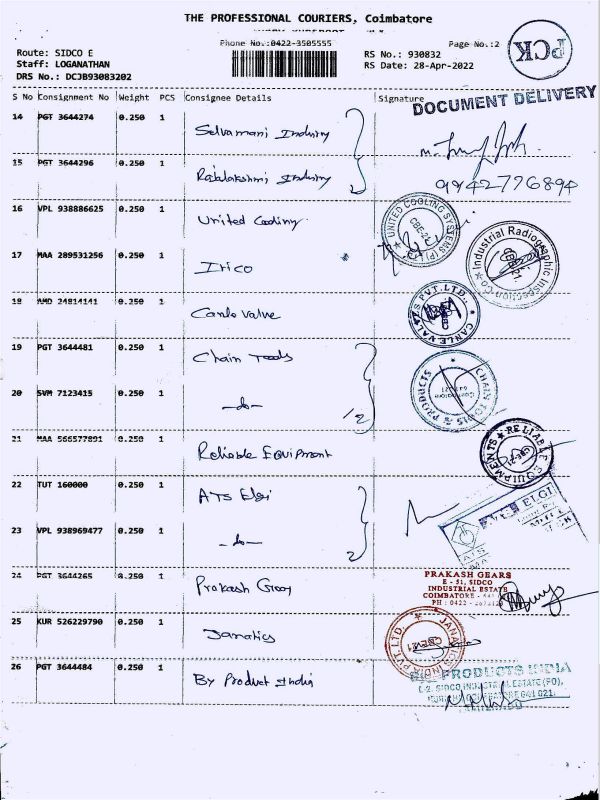 THE PROFESSIONAL COURIERS, Coimbatore
Phone No.:0422-3505555
Page No.:2
PCK
Route: SIDCO E
RS No.: 930832
Staff: LOGANATHAN
RS Date: 28-Apr-2022
DRS No.: DCJB93083202
S No Consignment No Weight PCS Consignee Details Signature
DOCUMENT DELIVERY
14 PGT 3644274 0.250 1 Selvamani Industry
15 PGT 3644296 0.250 1 Rajalakshmi Industry
9942776894
16 VPL 938886625 0.250 1 United Cooling
UNITED COOLING SYSTEMS (P) CBE-21
17 MAA 289531256 0.250 1 Irico
Industrial Radiographic Inspection Co CBE-21
18 AMD 24814141 0.250 1 Carle Valve
CARLE VALVES PVT. LTD.
19 PGT 3644481 0.250 1 Chain Tools
CHAIN TOOLS PRODUCTS Coimbatore 641 021
20 SVM 7123415 0.250 1 -do- /2
21 MAA 566577891 0.250 1 Reliable Equipment
RELIABLE EQUIPMENTS CBE-21
22 TUT 160000 0.250 1 ATS Elgi
ATS ELGI
23 VPL 938969477 0.250 1 -do- 2
24 PGT 3644265 0.250 1 Prakash Gear
PRAKASH GEARS
E - 51, SIDCO
INDUSTRIAL ESTATE
COIMBATORE - 641
PH : 0422 -
25 KUR 526229790 0.250 1 Janatics
JANATICS INDIA PVT. LTD.
26 PGT 3644484 0.250 1 By Product India
PRODUCTS INDIA
SIDCO INDUSTRIAL ESTATE (PO),
641 021.